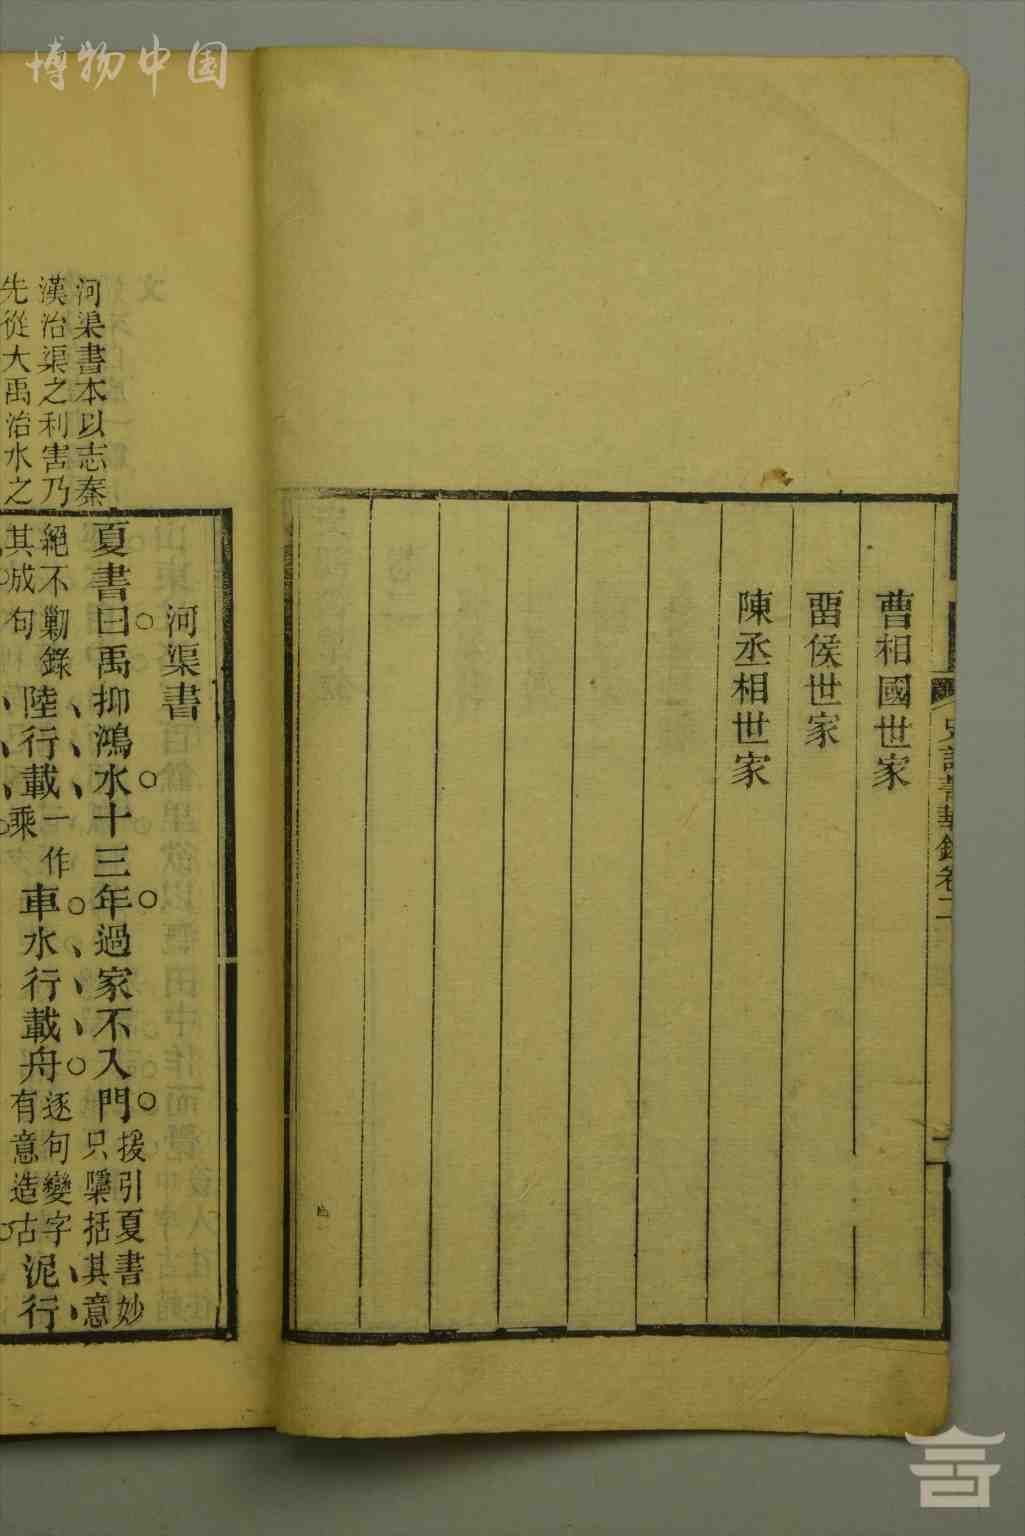 博物中国
史記菁華錄卷二
曹相國世家
留侯世家
陳丞相世家
河渠書本以志秦
漢治渠之利害乃
先從大禹治水之
河渠書
夏書曰禹抑鴻水十三年過家不入門援引夏書妙只櫽括其意
絕不勦錄其成句陸行載一作乘車水行載舟逐句變字有意造古泥行